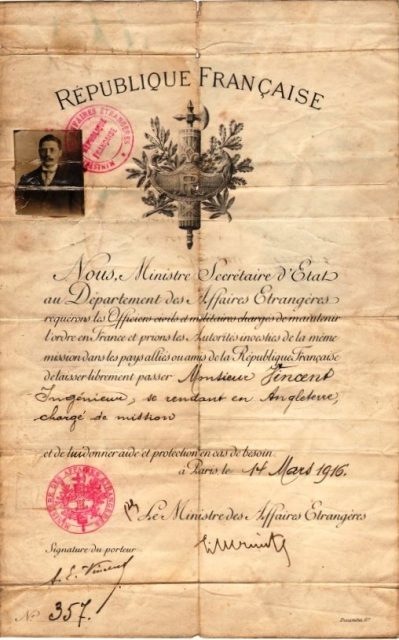 RÉPUBLIQUE FRANÇAISE
AFFAIRES ÉTRANGÈRES
RÉPUBLIQUE FRANÇAISE
RF
Nous, Ministre Secrétaire d'Etat
au Département des Affaires Etrangères
requérons les Officiers civils et militaires chargés de maintenir
l'ordre en France et prions les Autorités investies de la même
mission dans les pays alliés ou amis de la République Française
de laisser librement passer Monsieur Vincent
Ingénieur, se rendant en Angleterre,
chargé de mission
et de lui donner aide et protection en cas de besoin.
à Paris, le 14 Mars 1916.
Le Ministre des Affaires Etrangères
Signature du porteur
Vincent
No 357.